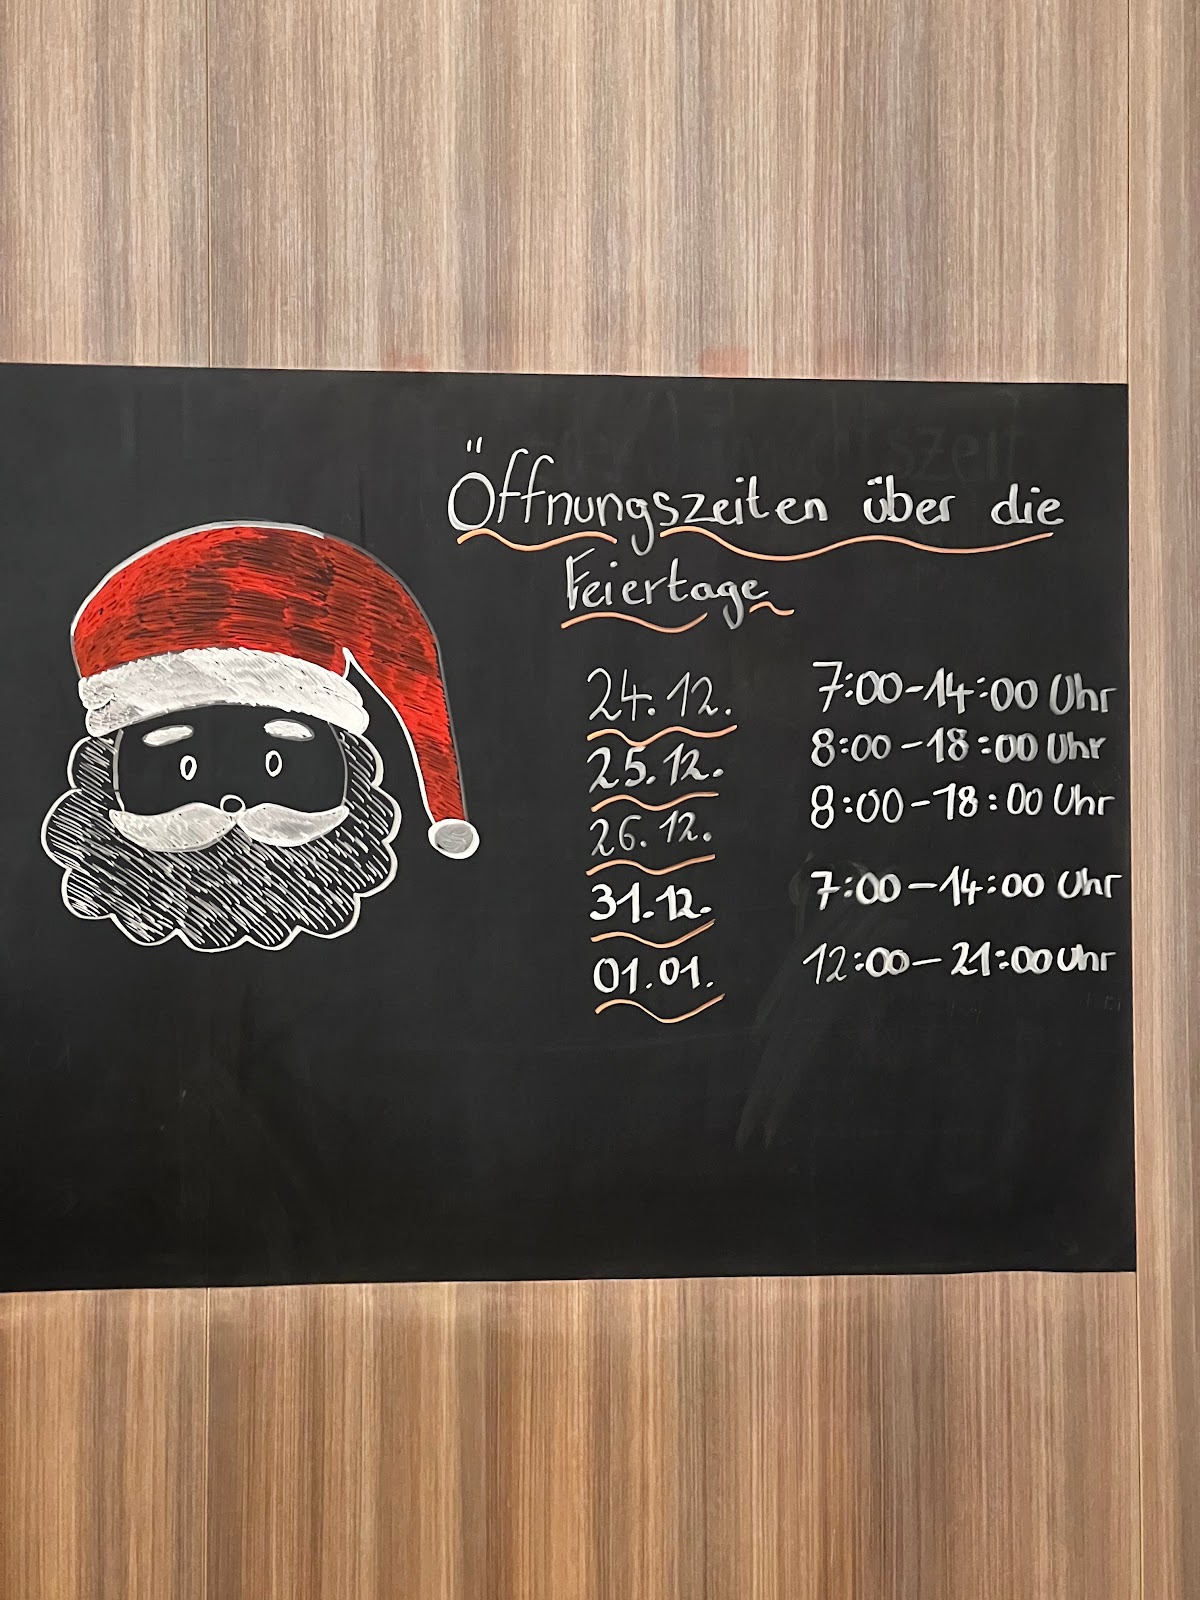 Öffnungszeiten über die
Feiertage
24.12. 7:00-14:00 Uhr
25.12. 8:00-18:00 Uhr
26.12. 8:00-18:00 Uhr
31.12. 7:00-14:00 Uhr
01.01. 12:00-21:00 Uhr